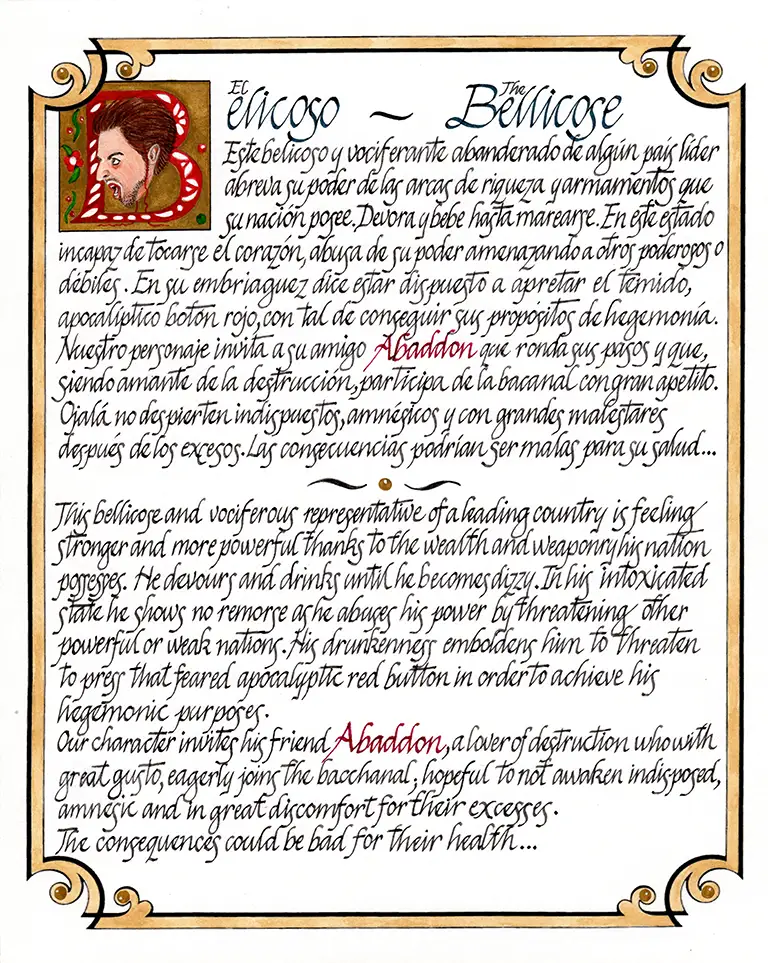 El Belicoso ~ The Bellicose
Este belicoso y vociferante abanderado de algún país líder
abreva su poder de las arcas de riqueza y armamentos que
su nación posee. Devora y bebe hasta marearse. En este estado
incapaz de tocarse el corazón, abusa de su poder amenazando a otros poderosos o
débiles. En su embriaguez dice estar dispuesto a apretar el temido,
apocalíptico botón rojo, con tal de conseguir sus propósitos de hegemonía.
Nuestro personaje invita a su amigo Abaddon que ronda sus pasos y que,
siendo amante de la destrucción, participa de la bacanal con gran apetito.
Ojalá no despierten indispuestos, amnésicos y con grandes malestares
después de los excesos. Las consecuencias podrían ser malas para su salud...
This bellicose and vociferous representative of a leading country is feeling
stronger and more powerful thanks to the wealth and weaponry his nation
possesses. He devours and drinks until he becomes dizzy. In his intoxicated
state he shows no remorse as he abuses his power by threatening other
powerful or weak nations. His drunkenness emboldens him to threaten
to press that feared apocalyptic red button in order to achieve his
hegemonic purposes.
Our character invites his friend Abaddon, a lover of destruction who with
great gusto, eagerly joins the bacchanal; hopeful to not awaken indisposed,
amnesic and in great discomfort for their excesses.
The consequences could be bad for their health...